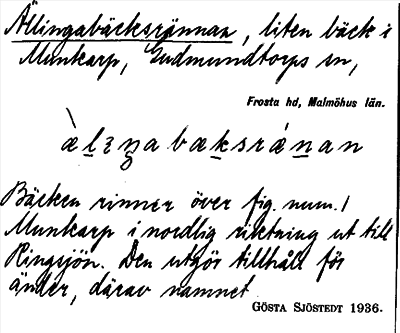 Ällingabäcksrännan, liten bäck i
Munkarp, Gudmundtorps sn,
Frosta hd, Malmöhus län.
àlıŋabæksrǽnan
Bäcken rinner över fig. num. 1
Munkarp i nordlig riktning ut till
Ringsjön. Den utgör tillhåll för
änder, därav namnet
GÖSTA SJÖSTEDT 1936.